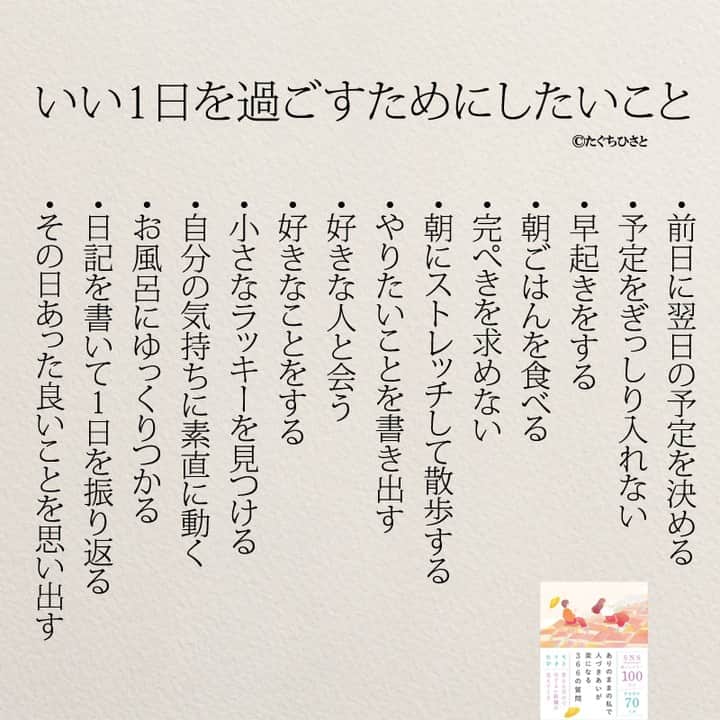 いい1日を過ごすためにしたいこと
©たぐちひさと
•前日に翌日の予定を決める
•予定をぎっしり入れない
•早起きをする
•朝ごはんを食べる
•完ぺきを求めない
•朝にストレッチして散歩する
•やりたいことを書き出す
•好きな人と会う
•好きなことをする
•小さなラッキーを見つける
•自分の気持ちに素直に動く
•お風呂にゆっくりつかる
•日記を書いて1日を振り返る
•その日あった良いことを思い出す
ありのままの私で
人づきあいが
楽になる
366の質問
SNS
100
70